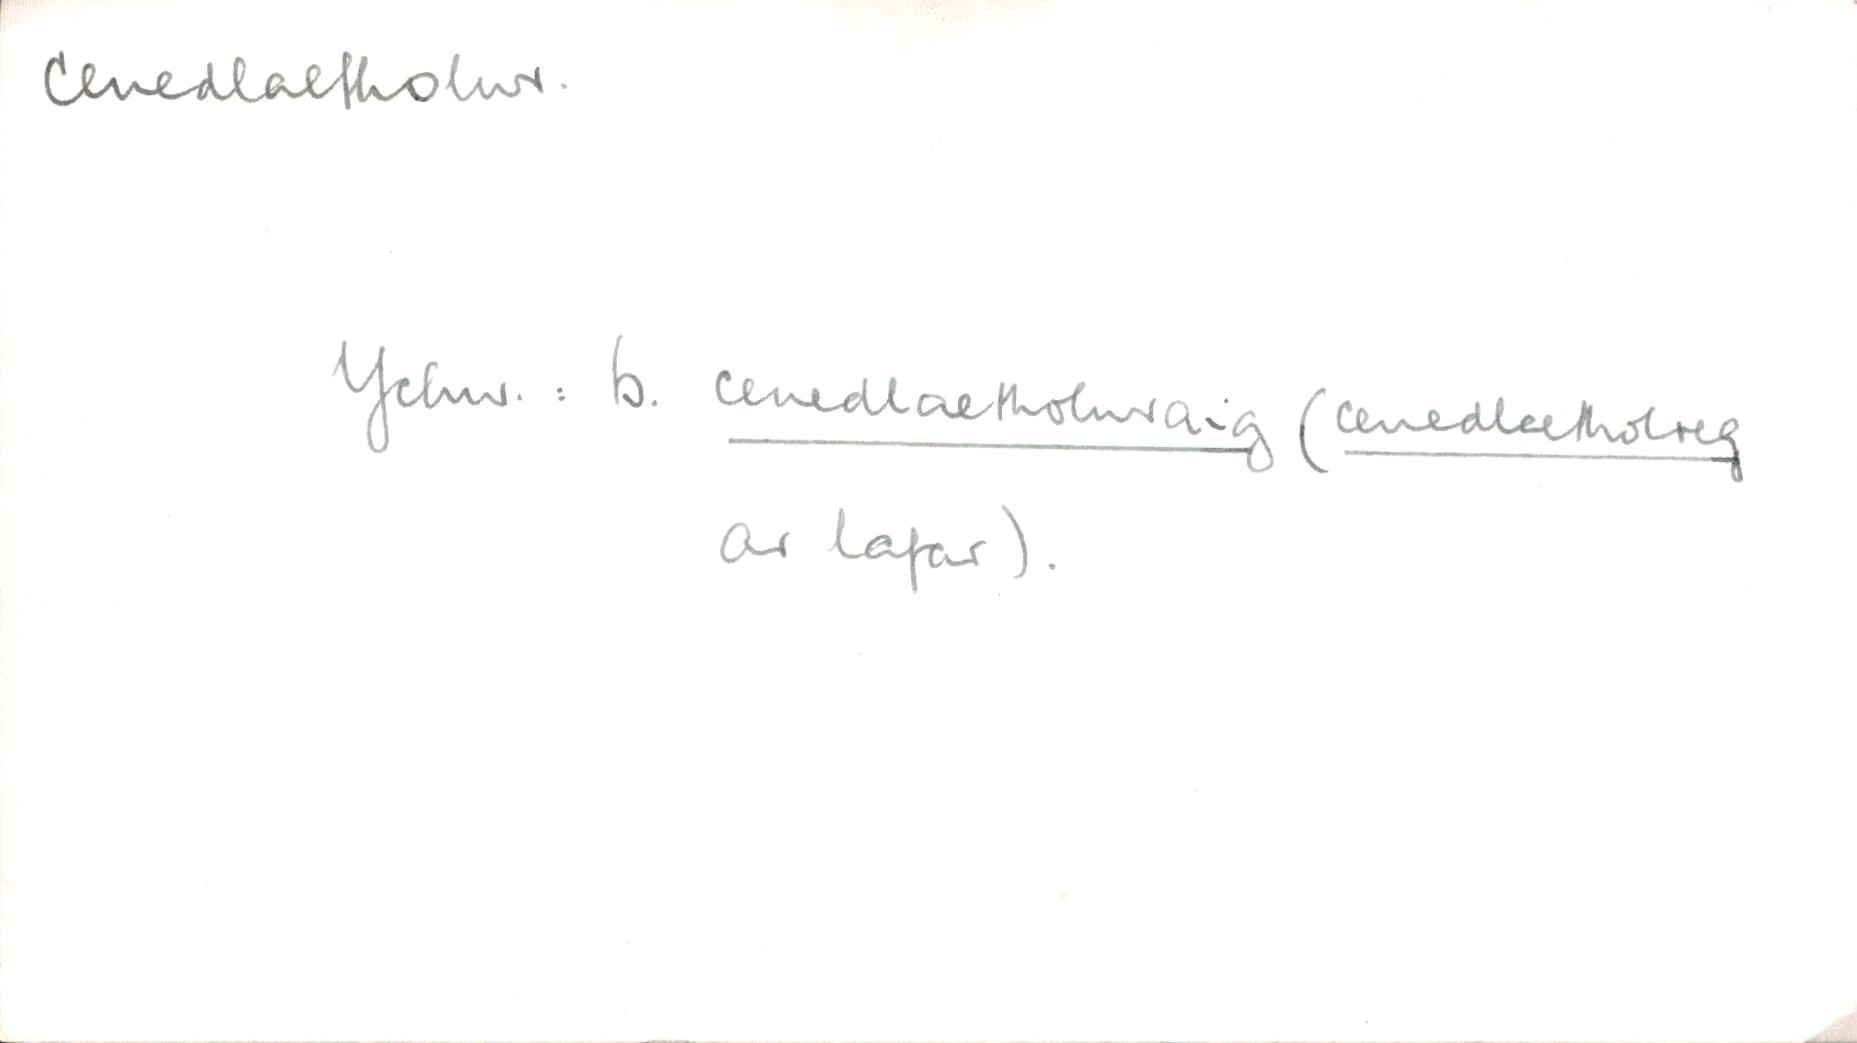 Cenedlaetholwr.
Ychw. : b. cenedlaetholwraig (cenedlaetholreg
ar lafar).